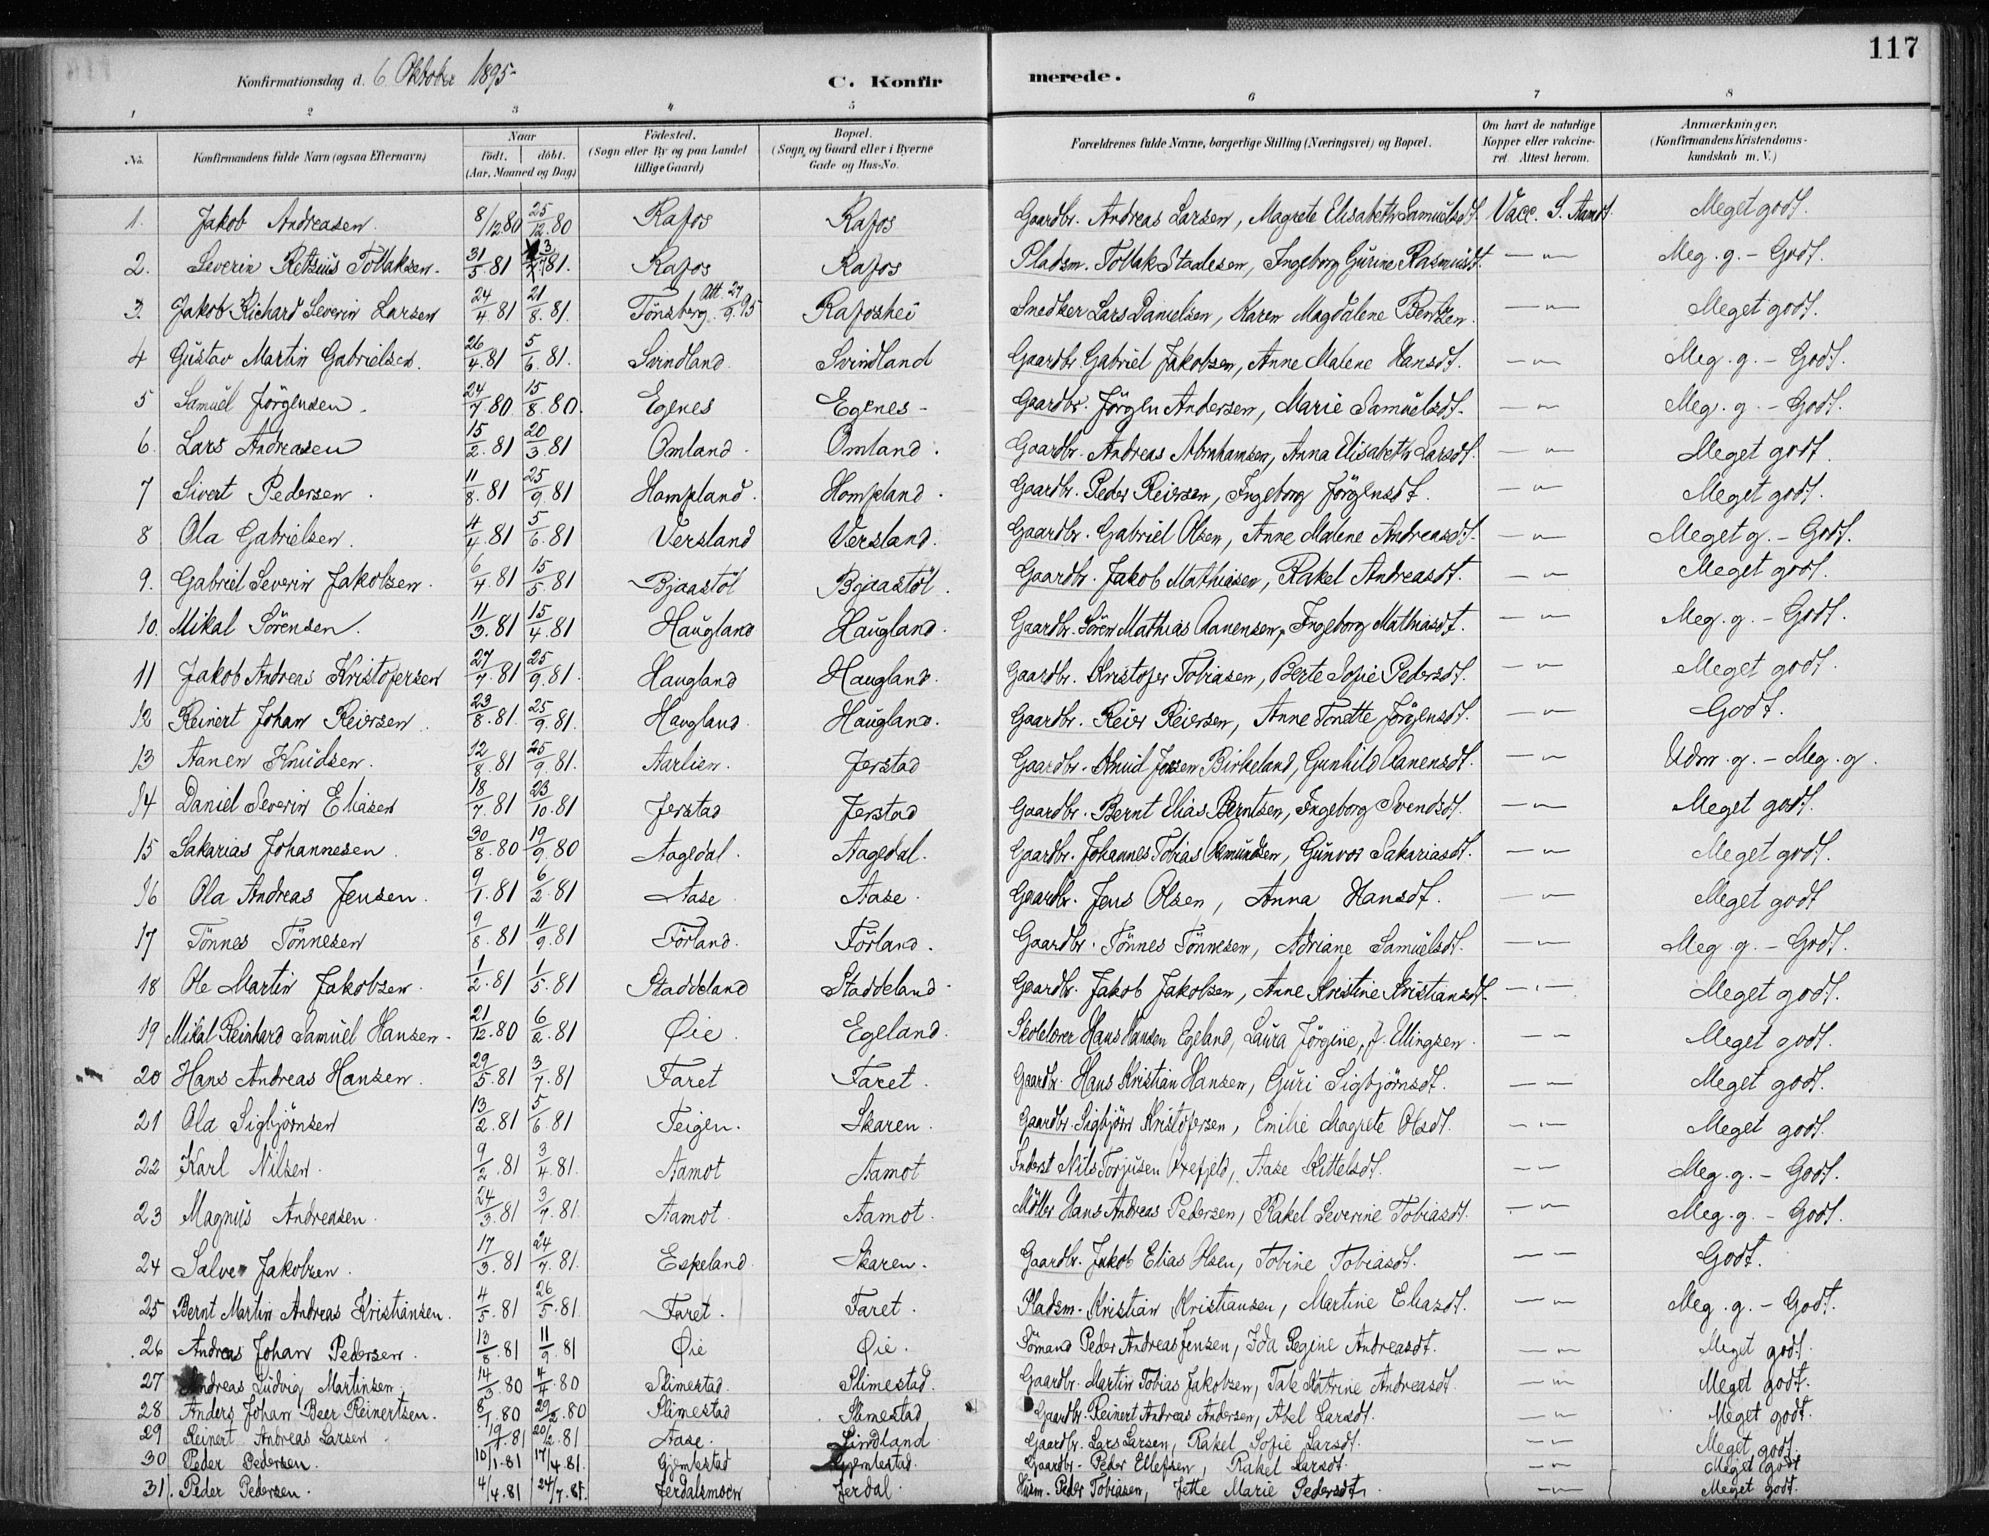 117
Konfirmationsdag d. 6 Oktober 1895-
C. Konfirmerede.
1 2 3 4 5 6 7 8
No. | Konfirmandens fulde Navn (ogsaa Efternavn) | Naar født. døbt. (Aar, Maaned og Dag) | Fødested. (Sogn eller By og paa Landet tillige Gaard) | Bopæl. (Sogn og Gaard eller i Byerne Gade og Hus-No. | Forældrenes fulde Navne, borgerlige Stilling (Næringsvei) og Bopæl. | Om havt de naturlige Kopper eller vakcineret. Attest herom. | Anmærkninger. (Konfirmandens Kristendomskundskab m. V.)
1. Jakob Andreasen. 8/12 80 25/12.80 Rafos Rafos Gaardbr. Andreas Larsen, Magrete Elisabeth Samuelsdt. Vacc. S. Aamot. Meget godt.
2. Severin Retsius Tollaksen. 31/5.81 81. Rafos Rafos Pladsm. Tollak Stadesen, Ingeborg Gurine Rasmusdt. — " — Meg. g. - Godt.
3. Jakob Richard Severin Larsen 24/4.81 21/8.81. Tönsberg. Att. 27/9.95 Rafoshei Snedker Lars Danielsen, Karen Magdalene Bentzen. — " — Meget godt.
4 Gustav Martin Gabrielsen. 26/4.81 5/6.81. Svindland. Svindland Gaardbr. Gabriel Jakobsen, Anne Malene Hansdt. — " — Meg. g. - Godt.
5 Samuel Jörgensen. 24/7.80 15/8.80. Egenes Egenes - Gaardbr. Jörgen Andersen, Marie Samuelsdt. — " — Meg. g. - Godt.
6. Lars Andreasen 15/2.81 20/3.81 Omland. Omland. Gaardbr. Andreas Abrahamsen, Anna Elisabeth Larsdt. — " — Meget godt.
7 Sivert Pedersen. 11/8.81 25/9.81 Hompland. Hompland. Gaardbr. Peder Reiersen, Ingeborg Jörgensdt. — " — Meget godt.
8 Ola Gabrielsen. 4/4.81 5/6.81 Versland Versland. Gaardbr. Gabriel Olsen, Anne Malene Andreasdt. — " — Meget g. - Godt.
9. Gabriel Severin Jakobsen. 6/4.81 15/5.81 Bjaastöl Bjaastöl. Gaardbr. Jakob Mathiasen, Rakel Andreasdt. — " — Meget godt.
10. Mikal Sörensen. 11/3.81 15/4.81 Haugland Haugland. Gaardbr. Sören Mathias Aanensen, Ingeborg Mathiasdt. — " — Meg. g. - Godt.
11 Jakob Andreas Kristofersen 27/7.81 25/9.81. Haugland Haugland. Gaardbr. Kristofer Tobiasen, Berte Sofie Pedersdt. — " — Meget godt.
12 Reinert Johan Reiersen. 23/8.81. 25/9.81. Haugland. Haugland. Gaardbr. Reier Reiersen, Anne Tonette Jörgensdt. — " — Godt.
13 Aanen Knudsen. 12/8.81 25/9.81. Aarlien. Jerstad Gaardbr. Knud Jossen Birkeland, Gunhild Aanensdt. — " — Udm. g. - Meg. g.
14 Daniel Severin Eliasen 18/7.81 23/10.81 Jerstad Jerstad Gaardbr. Bernt Elias Berntsen, Ingeborg Svendsdt. — " — Meget godt.
15 Sakarias Johannesen. 30/8.80 19/9.80 Aagedal. Aagedal. Gaardbr. Johannes Tobias Asmundsen, Gunvor Sakariasdt. — " — Meget godt.
16 Ola Andreas Jensen. 9/1.81 6/2.81 Aase Aase. Gaardbr. Jens Olsen, Anna Hansdt. — " — Meget godt
17 Tönnes Tönnesen 9/8.81 11/9.81 Förland. Förland. Gaardbr. Tönnes Tönnesen, Adriane Samuelsdt. — " — Meg. g. - Godt.
18 Ole Martin Jakobsen. 1/2.81 1/5.81 Staddeland Staddeland Gaardbr. Jakob Jakobsen, Anne Kristine Kristiansdt. — " — Meget godt.
19 Mikal Reinhard Samuel Hansen. 21/12.80 6/2.81 Øie. Egeland. Skolelærer Hans Hansen Egeland, Laura Jörgine, f. Ellingsen. — — Meget godt.
20 Hans Andreas Hansen. 29/5.81 3/7.81 Faret Faret. Gaardbr. Hans Kristian Hansen, Guri Sigbjörnsdt. — — Meget godt.
21 Ola Sigbjörnsen 13/2.81 5/6.81 Feigen. Skaren. Gaardbr. Sigbjörn Kristofersen, Emilie Magrete Olsdt. — " — Meget godt.
22 Karl Nilsen. 9/2.81 3/4.81. Aamot Aamot Inderst Nils Torjusen Oxefjeld, Aase Kittelsdt. — " — Meg. g. - Godt.
23 Magnus Andreasen. 24/3.81 3/7.81. Aamot. Aamot. Möller Hans Andreas Pedersen, Rakel Severine Tobiasdt. — " — Meg. g. - Godt.
24 Salve Jakobsen. 17/3.81 24/7.81. Espeland. Skaren. Gaardbr. Jakob Elias Olsen, Tobine Tobiasdt. — — Godt.
25 Bernt Martin Andreas Kristiansen. 4/5.81 26/5.81. Faret. Faret. Pladsm. Kristian Kristiansen, Martine Eliasdt. — " — Meg. g. - Godt.
26 Andreas Johan Pedersen. 13/8.81 11/9.81 Øie Øie. Sömand Peder Andreas Jensen, Ida Regine Andreasdt. — — Meget godt.
27 Andreas Ludvig Martinsen 14/3.80 4/4.80 Slimestad. Slimestad. Gaardbr. Martin Tobias Jakobsen, Tale Katrine Andreasdt. — " — Meget godt.
28 Anders Johan Beer Reinertsen. 8/1.80 29/2.80 Slimestad Slimestad Gaardbr. Reinert Andreas Andersen, Abel Larsdt. — " — Meget godt.
29 Reinert Andreas Larsen 81 20/2.81 Aase. Lindland Gaardbr. Lars Larsen, Rakel Sofie Larsdt. — " — Meget godt.
30 Peder Pedersen. 10/1.81 17/4.81. Gjemlestad Gjemlestad. Gaardbr. Peder Ellefsen, Rakel Larsdt. — " — Meget godt
31. Peder Pedersen. 4/4.81 24/7.81. Jerdalsmoen Jerdal. Husm. Peder Tobiasen, Jette Marie Pedersdt. — " — Meget godt.